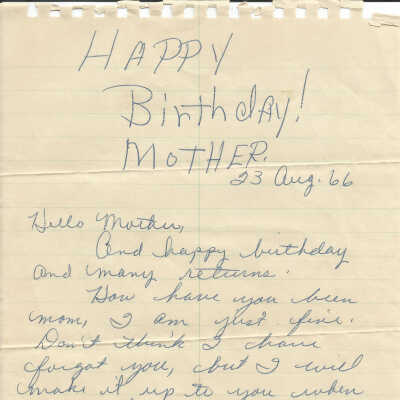 HAPPY
Birthday!
MOTHER.
23 Aug. 66
Hello Mother,
And happy birthday
and many returns.
How have you been
mom, I am just fine.
Don't think I have
forgot you, but I will
make it up to you when